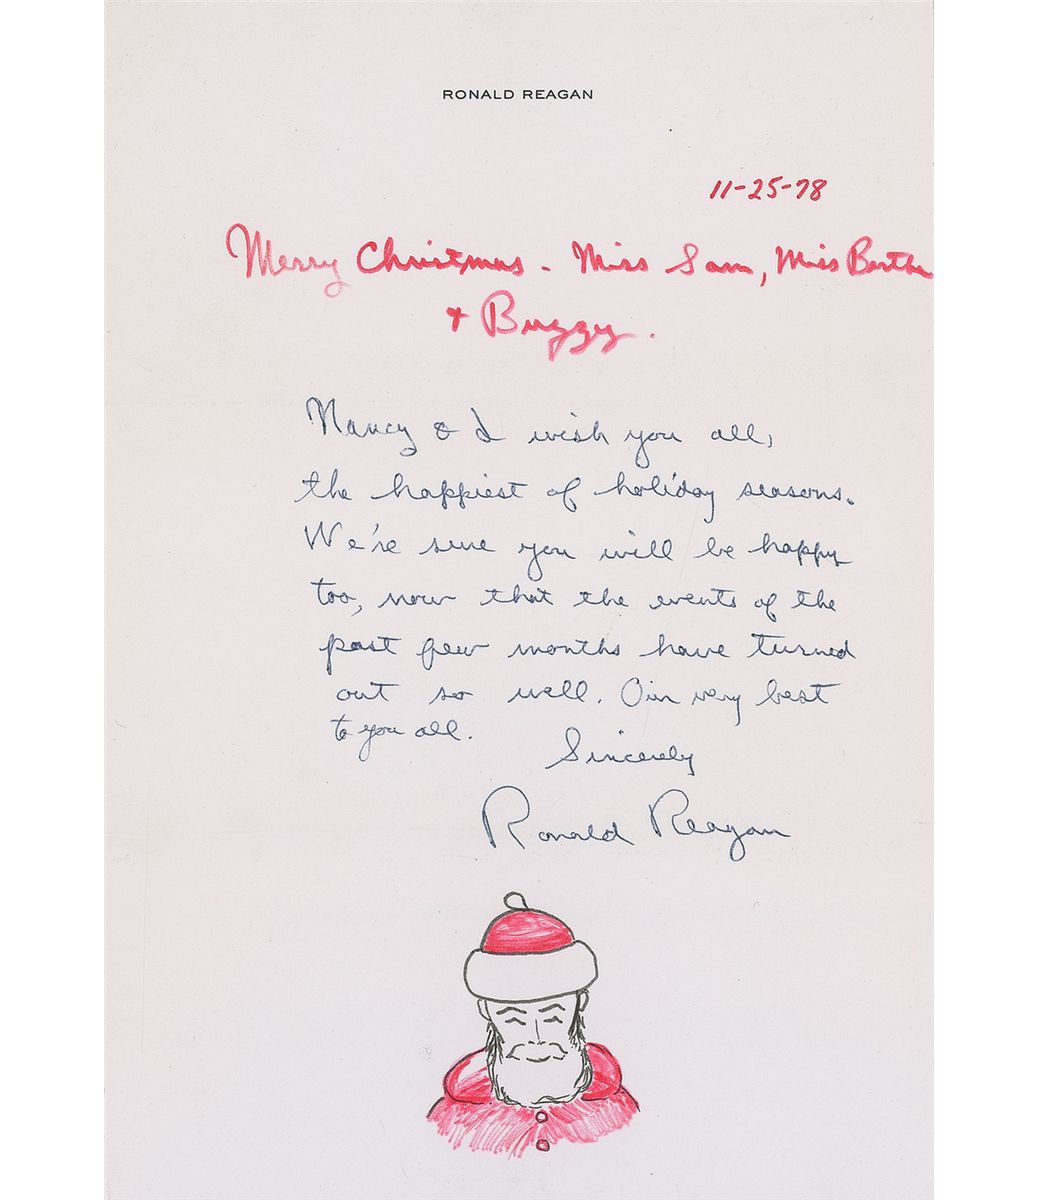 RONALD REAGAN
11-25-78
Merry Christmas - Miss Sam, Miss Bertha
+ Buggy.
Nancy & I wish you all,
the happiest of holiday seasons.
We're sure you will be happy
too, now that the events of the
past few months have turned
out so well. Our very best
to you all.
Sincerely
Ronald Reagan